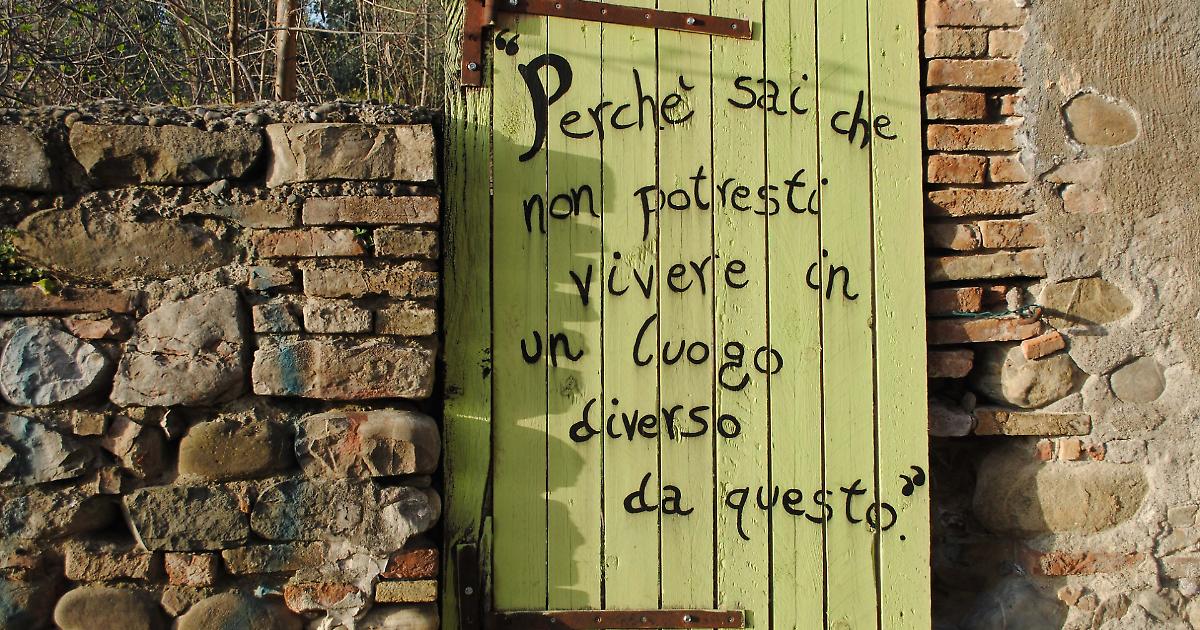 “Perchè sai che
non potresti
vivere in
un luogo
diverso
da questo”.